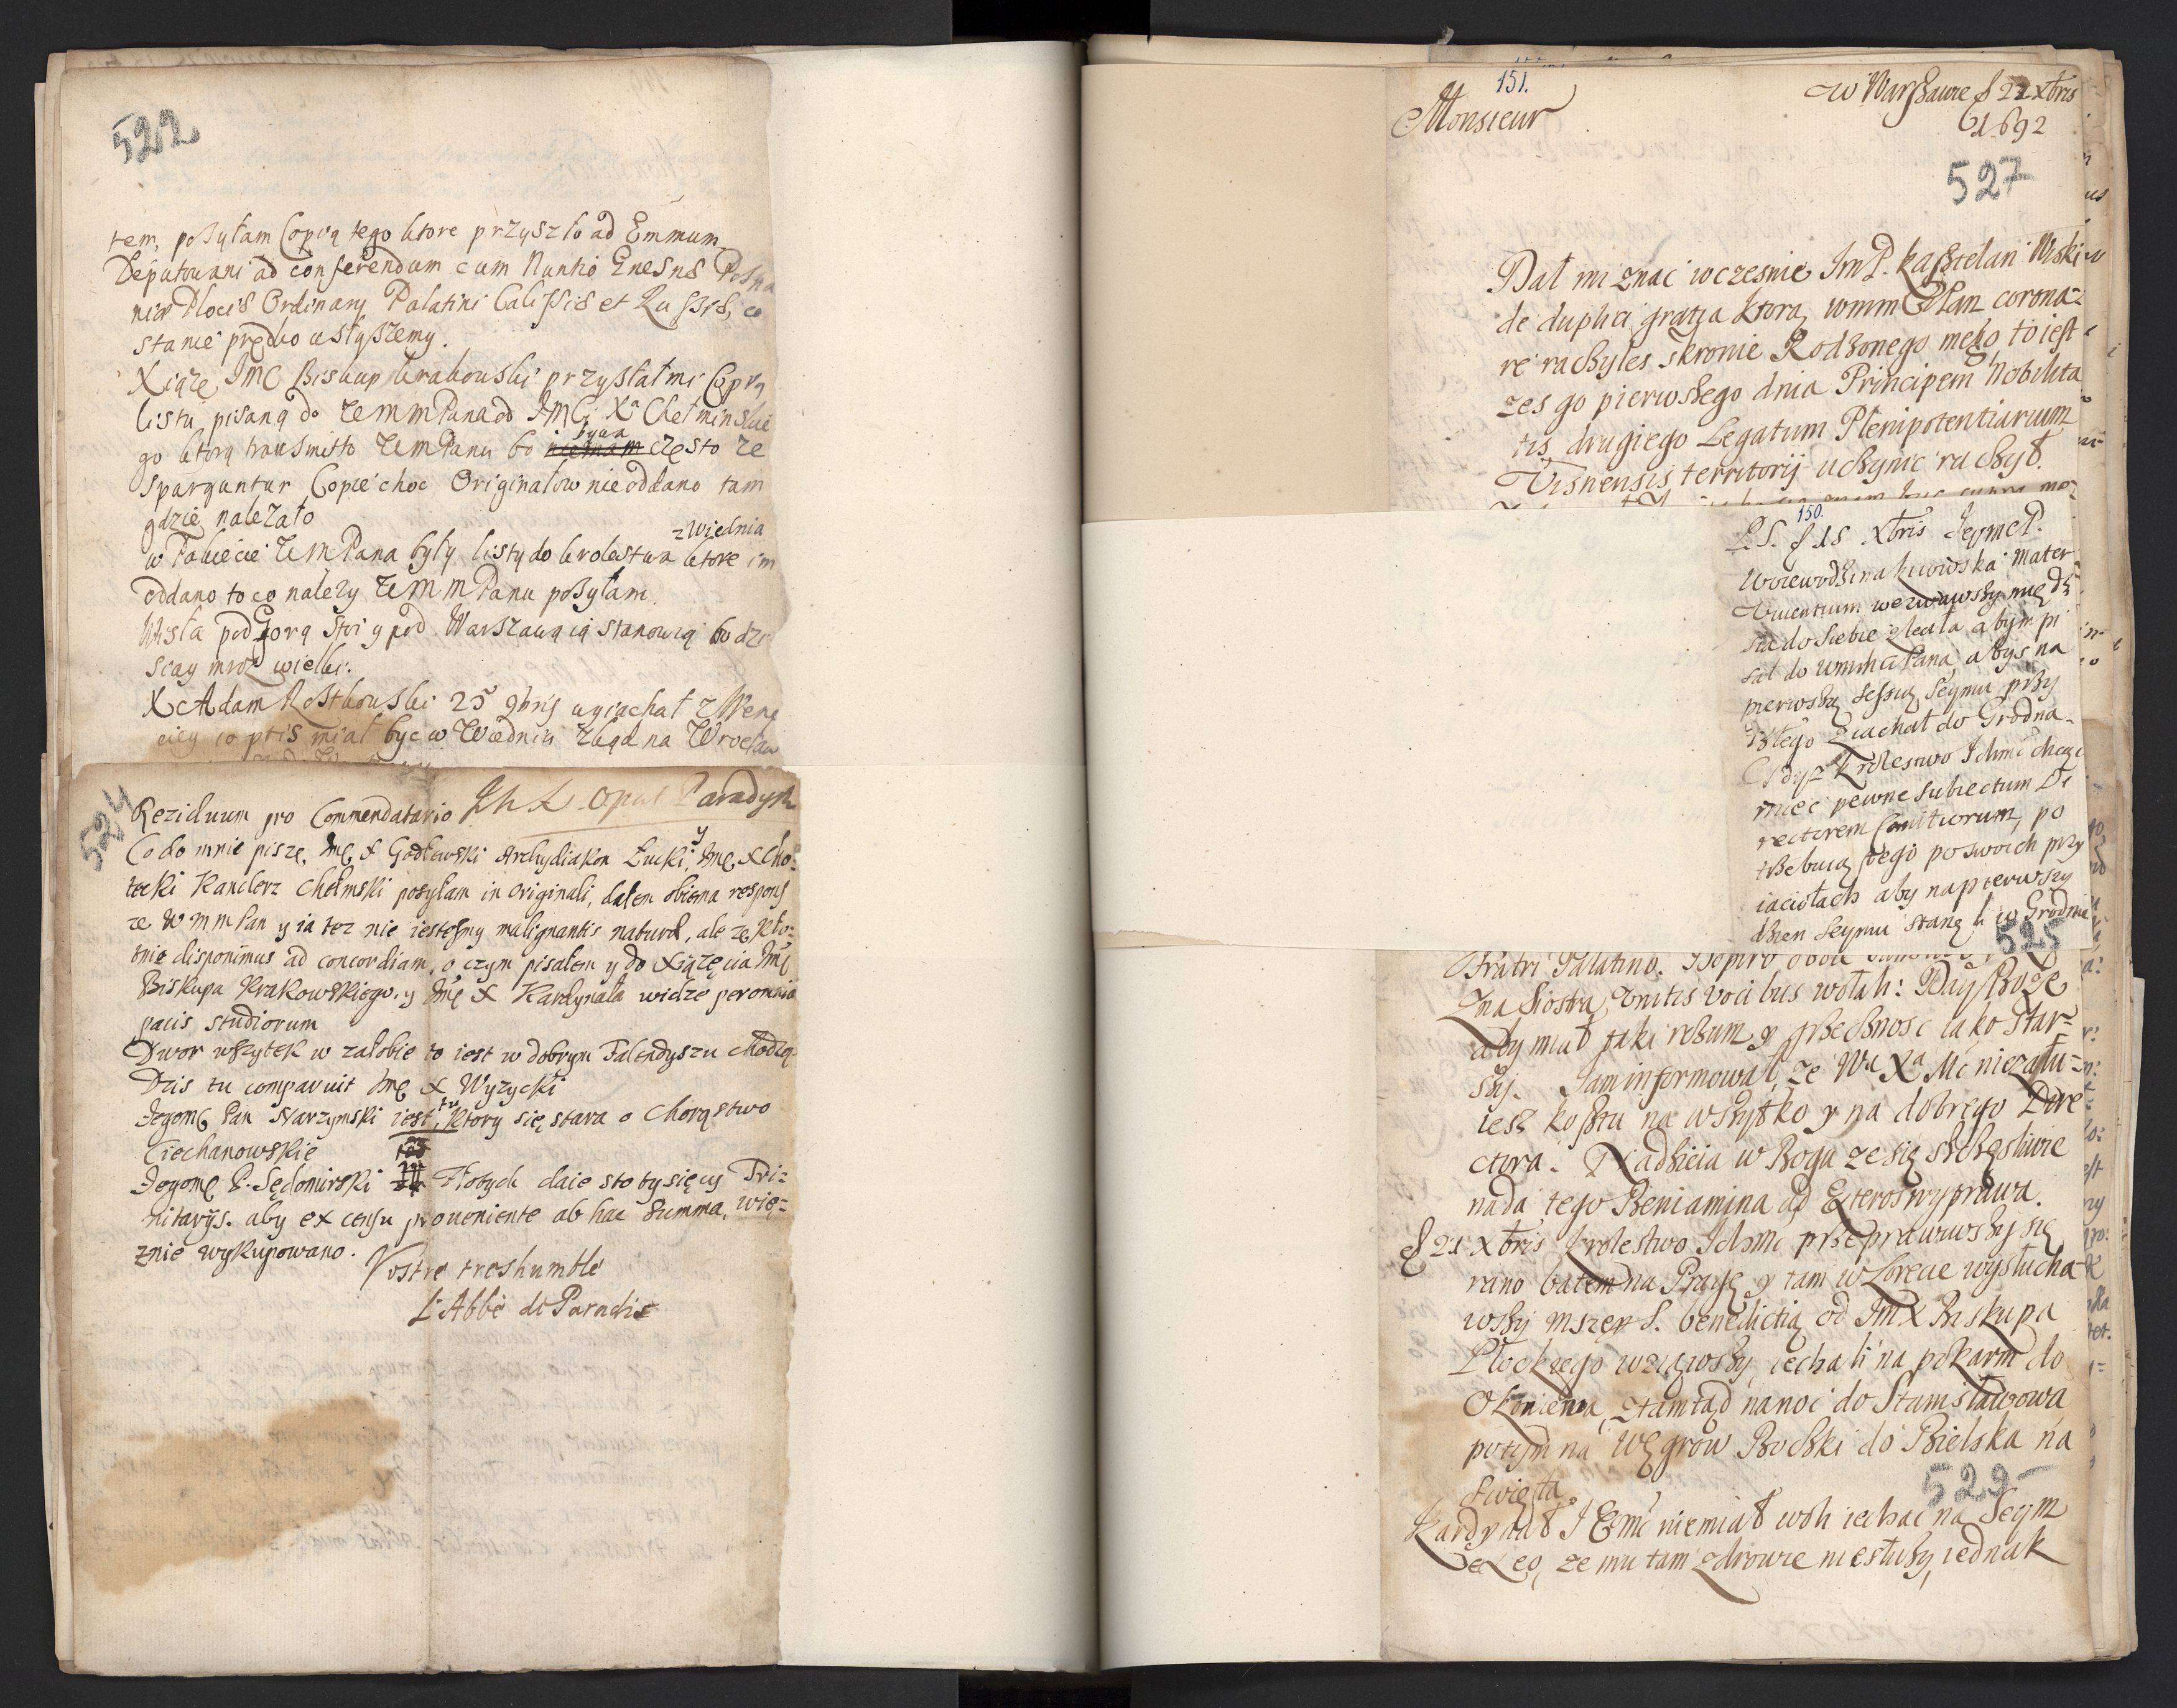 522
tem, posyłam Copią tego ktore przyszło ad Emmum
Deputowani ad conferendum cum Nuntio Gnesns Posna
nis Plocis Ordinary Palatini Calissis et Russis, co
stanie prędko usłyszemy.
Xiąże JMC Biskup krakowski przysłał mi Copią
listu pisaną do WMMPana od JMCi Xa Chełminskie
go ktorą transmitto WMPanu bo bywa często ze
sparguntur Copie choc Originałow nie oddano tam
gdzie należało
w Pakiecie WMPana były listy do krolestwa z Wiednia ktore im
oddano to co należy WMMPanu posyłam.
Wisła pod Gorą stoi y pod Warszawą ią stanowią bo dzi
siay mroz wielki.
X Adam Rostkowski 25 9bris wyiachał z Wene
ciey 10 ptis miał byc w Wiedniu zkąd na Wrocław
524
Reziduum pro Commendatario
Co do mnie pisze, Jmę X Godlewski Archydiakon Łucki, y Jmę X Cho:
tecki Kanclerz Chełmski posyłam in originali, dałem obiema respons
ze W M M Pan y ia tez nie iestesmy malignantis naturæ, ale ze kło:
tnie disponimus ad concordiam, o czym pisałem y do Xiążęcia Jmę
Biskupa Krakowskiego, y Jmę X Kardynała widzę per omnia
pacis studiorum
Dwor wszytek w załobie to iest w dobrym Falendyszu chodzą
Dzis tu comparuit Jmę X Wyzycki
Jegomę Pan Narzymski iest tu, ktory się stara o Chorąstwo
Ciechanowskie
Jegomę P. Sędomirski Złotych daie sto tysięcy Tri:
nitarijs. aby ex censu proveniente ab hac Summa, wię=
znie wykupowano.
Vostre treshumble
L'Abbé de Paradis
151.
w Warszawie d 22 xbris
1692
Monsieur
527
Dał mi znać wczesnie JmP. kasztelan Wiski
de duplici gratia ktorą wmm Pan corona=
re raczyłes skronie Rodzonego mego, to iest
zes go pierwszego dnia Principem Nobilita
tis, drugiego Legatum Plenipotentiarium
Visnensis territorij uczynic raczył.
150.
P.S. d 18 xbris Jeymcć P.
Woiewodzina kiiowska Mater
Viventium wezwawszy mię dzi
sia do siebie zleciła abym pi
sał do wmmci Pana, abys na
pierwszą Sessią Seymu przy
szłego ziachał do Grodna.
Gdyż krolestwo Ichmć chcąc
miec pewne subiectum Di
rectorem Comitiorum, po
trzebuią tego po swoich przy
iaciołach aby na pierwszy
dzien Seymu stanęli w Grodnie
525
Fratri Palatino.
zna siostra, unitis vocibus wołali: Day Boze
aby miał taki rozum y grzecznosc iako star=
szy. Jam informował, ze Wa Xa Mć nie zału=
iesz kosztu na wszytko y na dobrego Dire
ctora. Nadzieia w Bogu ze się szczęsliwie
nada tego Beniamina ad Exteros wyprawa.
d 21 xbris krolestwo Ichmć przeprawiwszy się
rano batem na Pragę y tam w Lorecie wysłucha
wszy mszey S. benedictią od Jm X Biskupa
Płockiego wziąwszy, iechali na pokarm do
Okuniewa, ztamtąd na noc do Stanisławowa
potym na Węgrow Bocki do Bielska na
Swięta
529
Kardynał J Emć nie miał woli iechac na Seym
dla tego, ze mu tam zdrowie niesłuzy, iednak